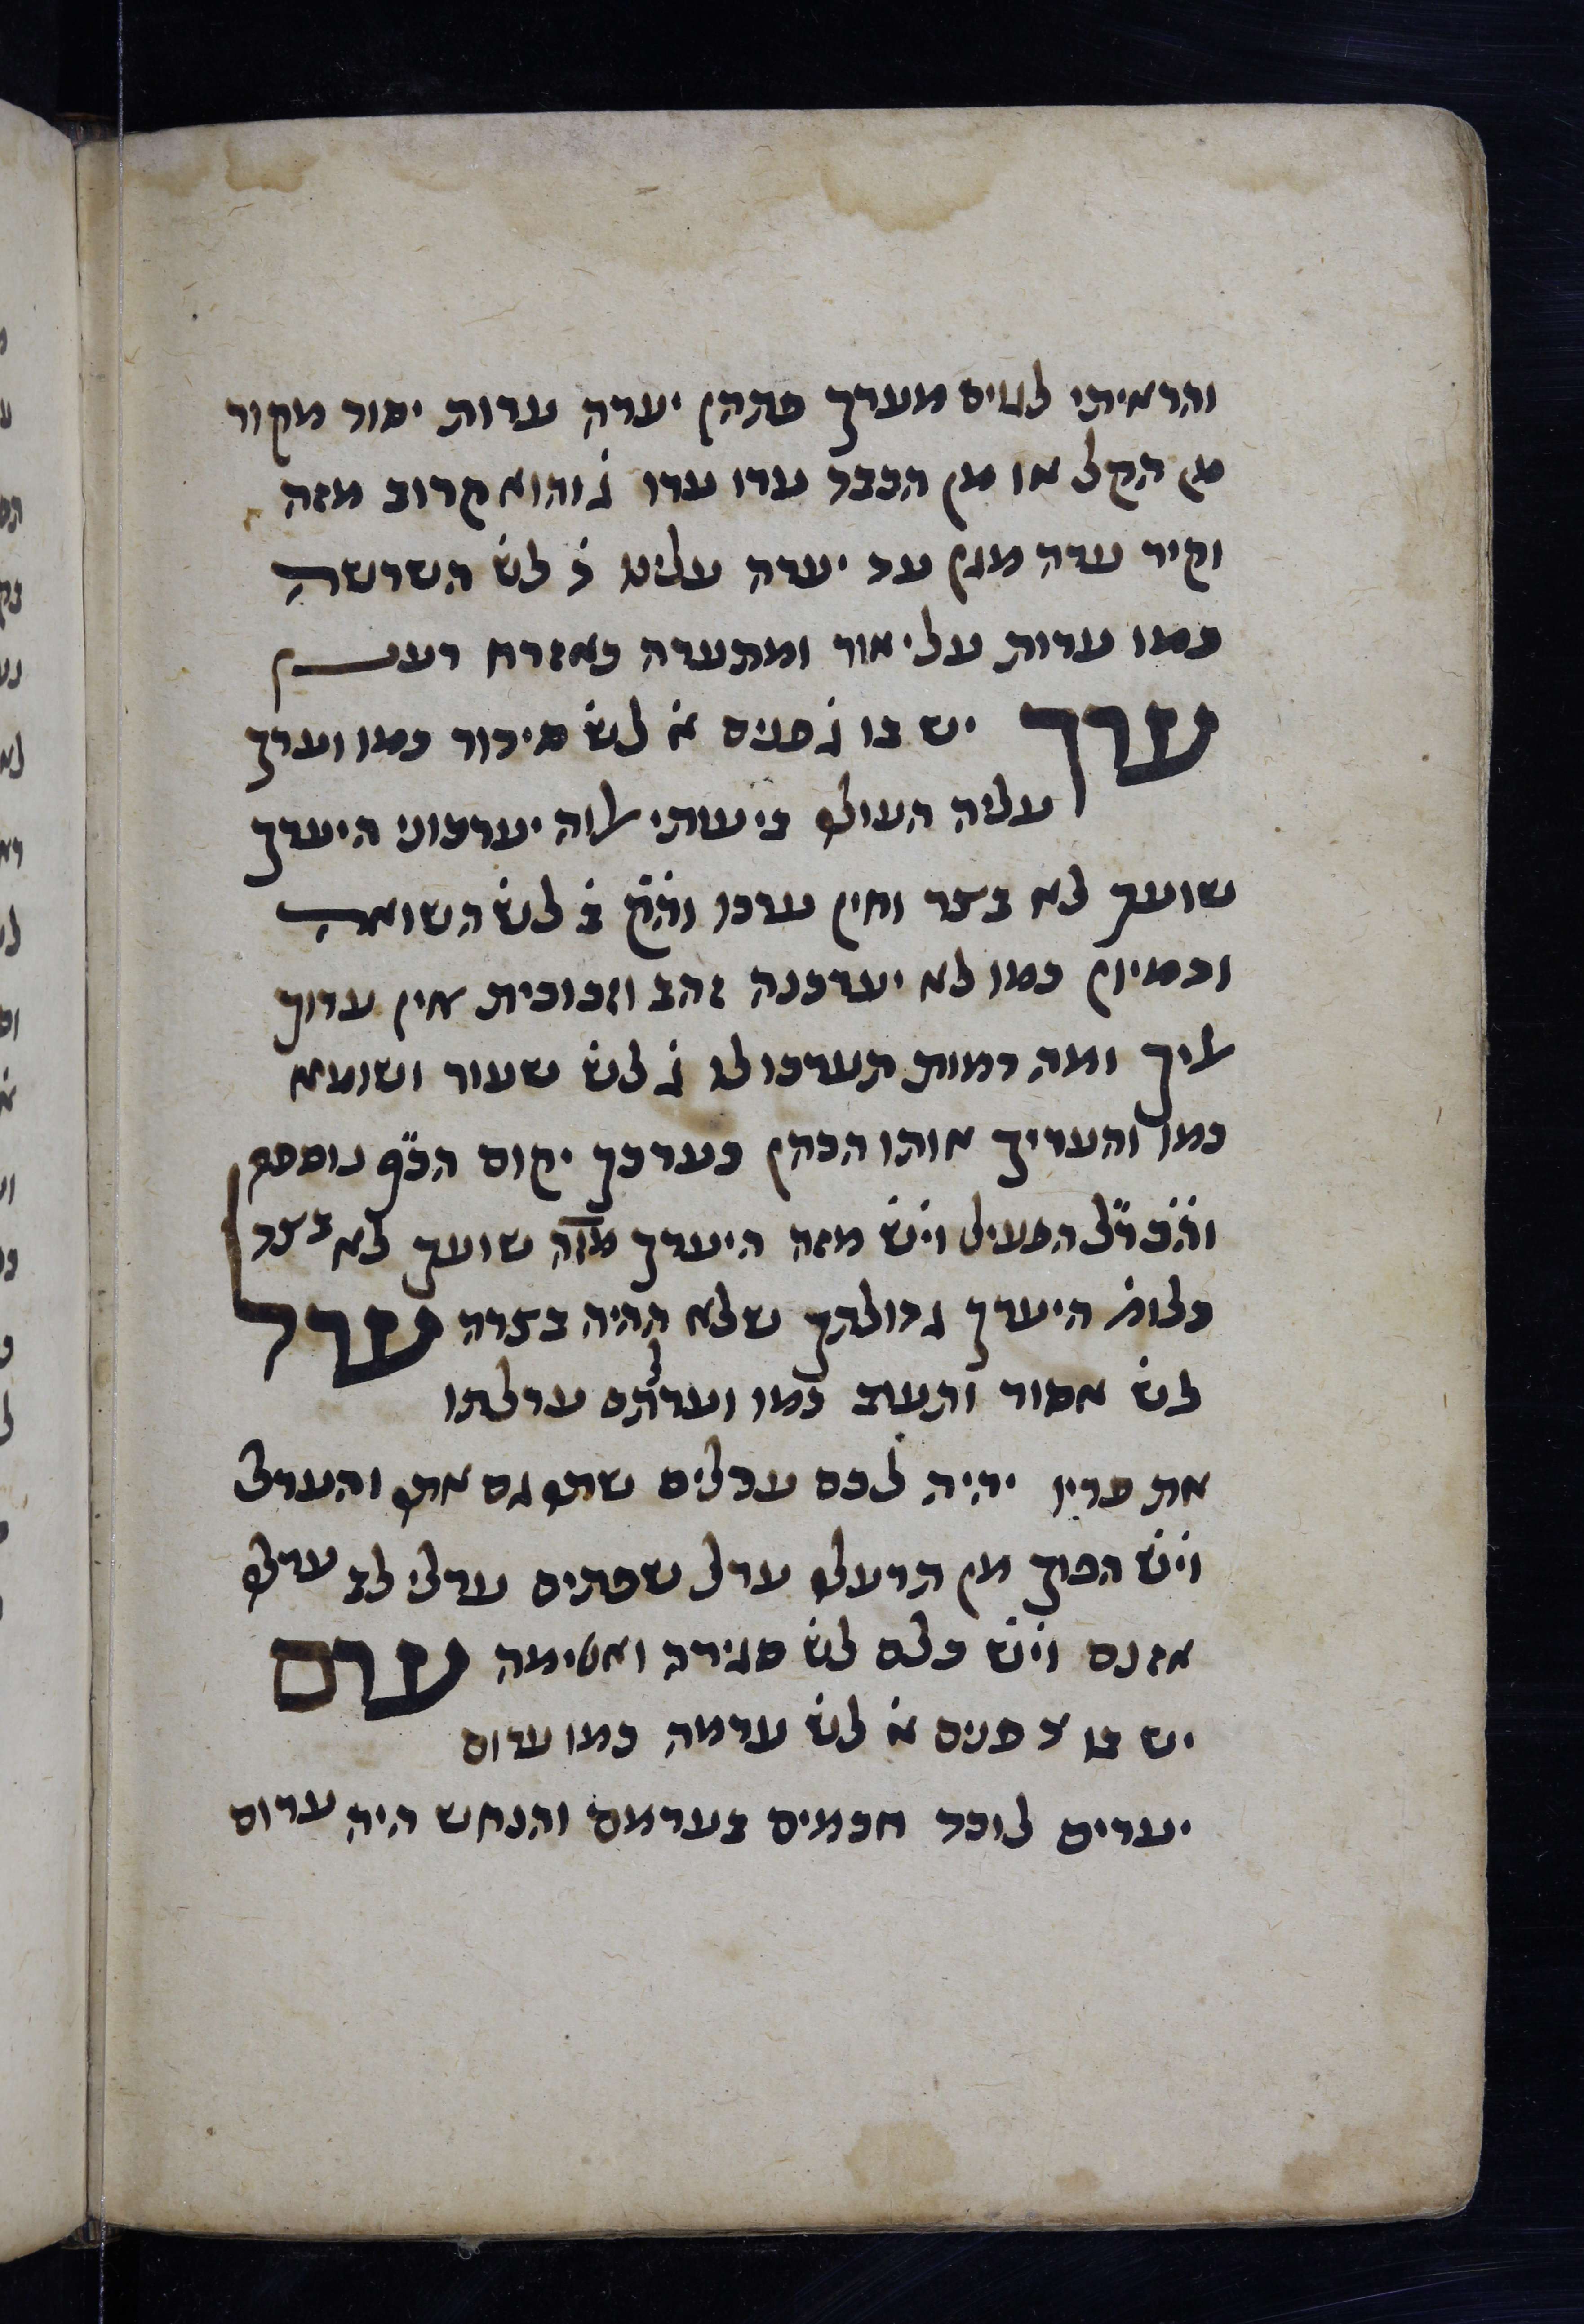 והראיתי לגוים מערך פתהן יערה ערות יסוד מקור
מן הקל או מן הכבד ערו ערו ג̇ והוא קרוב מזה
וקיר ערה מגן עד יערה עלינו ד̇ לש̇ השרשה
כמו ערות על יאור ומתערה כאזרח רענן
ערך יש בו ג̇ פנים א̇ לש̇ סידור כמו וערך
עליה העולה בעותי אלוה יערכוני היערך
שועך לא בצר ואין ערכו וה̇ק̇ ב̇ לש̇ השואה
ודמיון כמו לא יערכנה זהב וזכוכית אין ערוך
אליך ומה דמות תערכו לו ג̇ לש̇ שעור ושומא
כמו והעריך אותו הכהן כערכך יקום הכ̈ף נוספת
וה̇כ̇ב̈ד הפעיל וי̇ש̇ מזה היערך מזה שועך לא בצר
כלומ̇ היערך גדולתך שלא תהיה בצרה ערל
לש̇ אסור ותעוב כמו וערלתם ערלתו
את פריו יהיה לכם ערלים שתה גם אתה והערל
וי̇ש̇ הפוך מן תרעלה ערל שפתים ערלי לב ערלה
אזנם וי̇ש̇ כלם לש̇ סגירה ואטימה ערם
יש בו ד פנים א̇ לש̇ ערמה כמו ערום
יערים לוכד חכמים בערמם והנחש היה ערום